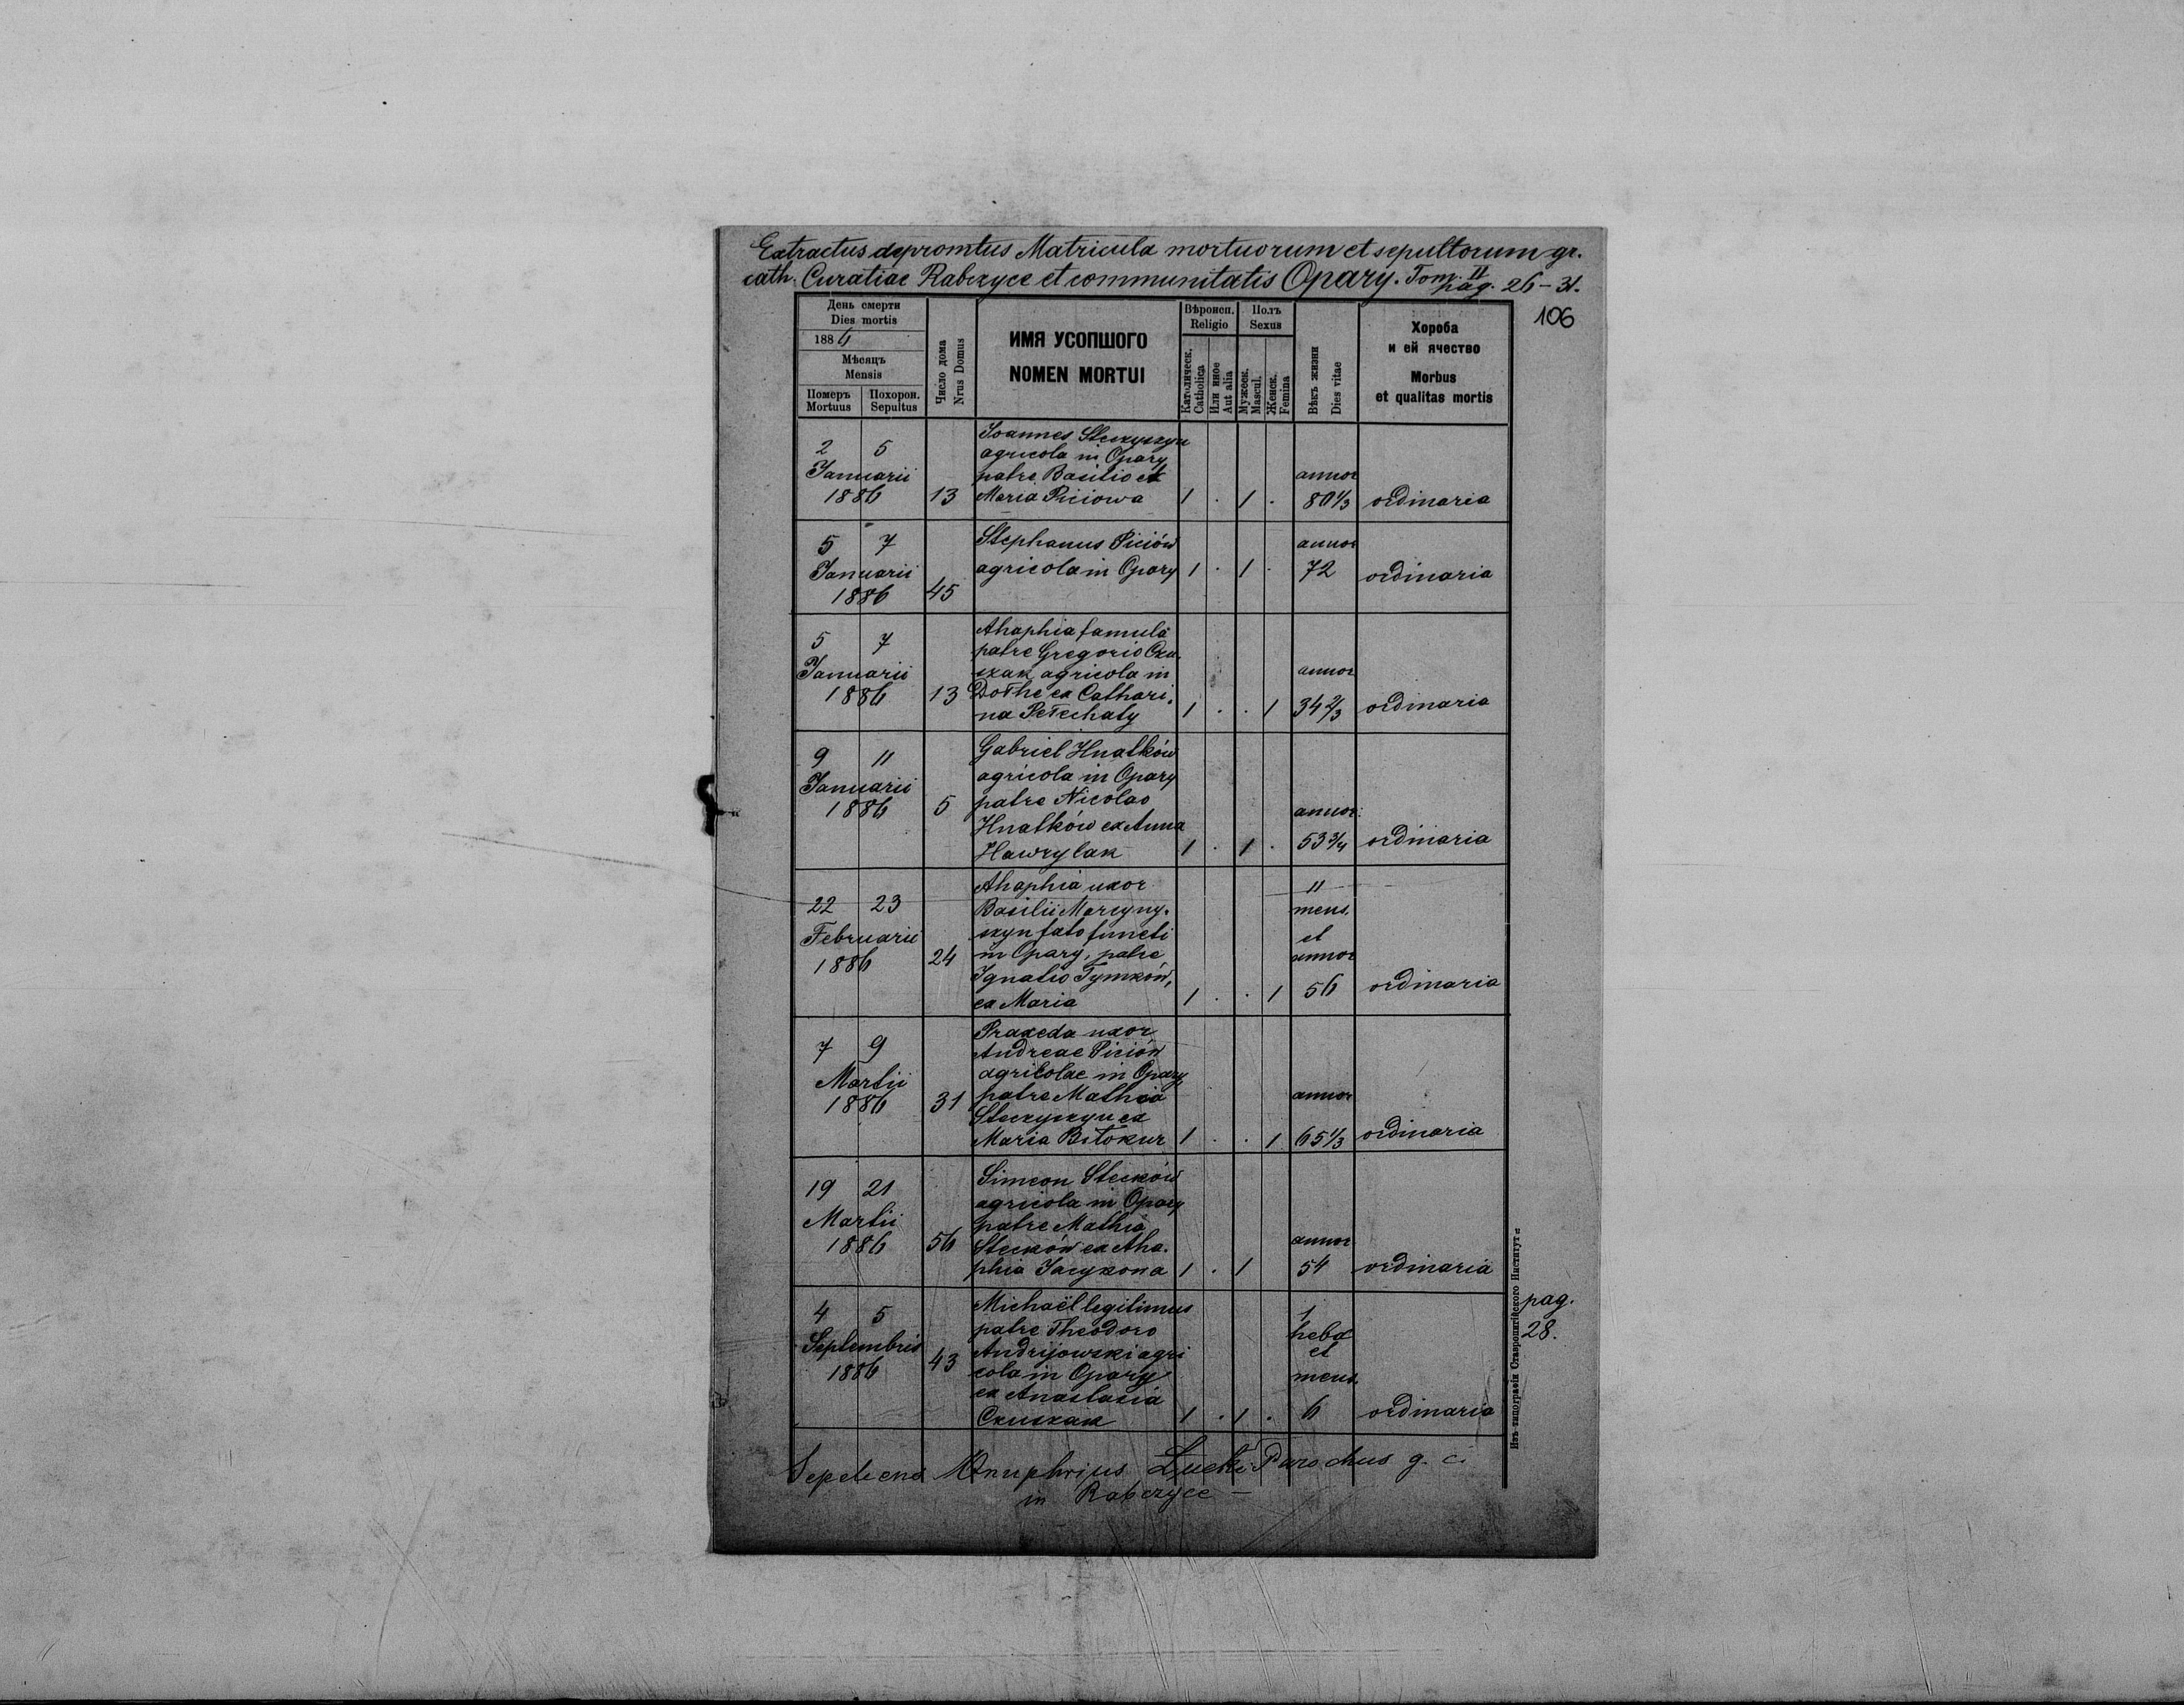 Extractus depromtus Matricula mortuorum et sepultorum gr.
cath. Curatiae Rabczyce et communitatis Opary. Tom. II
pag. 26-31.
106
День смерти
Dies mortis
1886
Мѣсяцъ
Mensis
Померъ Похорон.
Mortuus Sepultus
Число дома
Nrus Domus
ИМЯ УСОПШОГО
NOMEN MORTUI
Вѣроисп.
Religio
Католическ.
Catholica
Или иное
Aut alia
Полъ
Sexus
Мужеск.
Mascul.
Женск.
Femina
Вѣкъ жизни
Dies vitae
Хороба
и ей ячество
Morbus
et qualitas mortis
2 5
Januarii
1886
13
Joannes Steczyszyn
agricola in Opary
patre Basilio et
Maria Piciowa
1 . 1 .
annor
80 1/3
ordinaria
5 7
Januarii
1886
45
Stephanus Piciów
agricola in Opary
1 . 1 .
annor
72
ordinaria
5 7
Januarii
1886
13
Ahaphia famula
patre Gregorio Czu-
czak agricola in
Dołhe ex Cathari-
na Pełechaty
1 . . 1
annor
34 2/3
ordinaria
9 11
Januarii
1886
5
Gabriel Hnatków
agricola in Opary
patre Nicolao
Hnatków ex Anna
Hawrylak
1 . 1 .
annor:
53 3/4
ordinaria
22 23
Februarii
1886
24
Ahaphia uxor
Basilii Marcyny-
szyn fato functi
in Opary, patre
Ignatio Tymków,
ex Maria
1 . . 1
11
mens.
et
annor
56
ordinaria
7 9
Martii
1886
31
Praxeda uxor
Andreae Piciów
agricolae in Opary
patre Mathia
Steczyszyn ex
Maria Biłokur
1 . . 1
annor
65 1/3
ordinaria
19 21
Martii
1886
56
Simeon Steczków
agricola in Opary
patre Mathia
ex Aha-
phia Jacykowa
1 . 1
annor
54
ordinaria
4 5
Septembris
1886
43
Michaël legitimus
patre Theodoro
Andrijowski agri
cola in Opary
ex Anastasia
1 . 1 .
1
hebd
et
mens.
6
ordinaria
pag.
28.
Изъ типографіи Ставропигійского Институт
Onuphrius Łucki Parochus g. c.
in Rabczyce